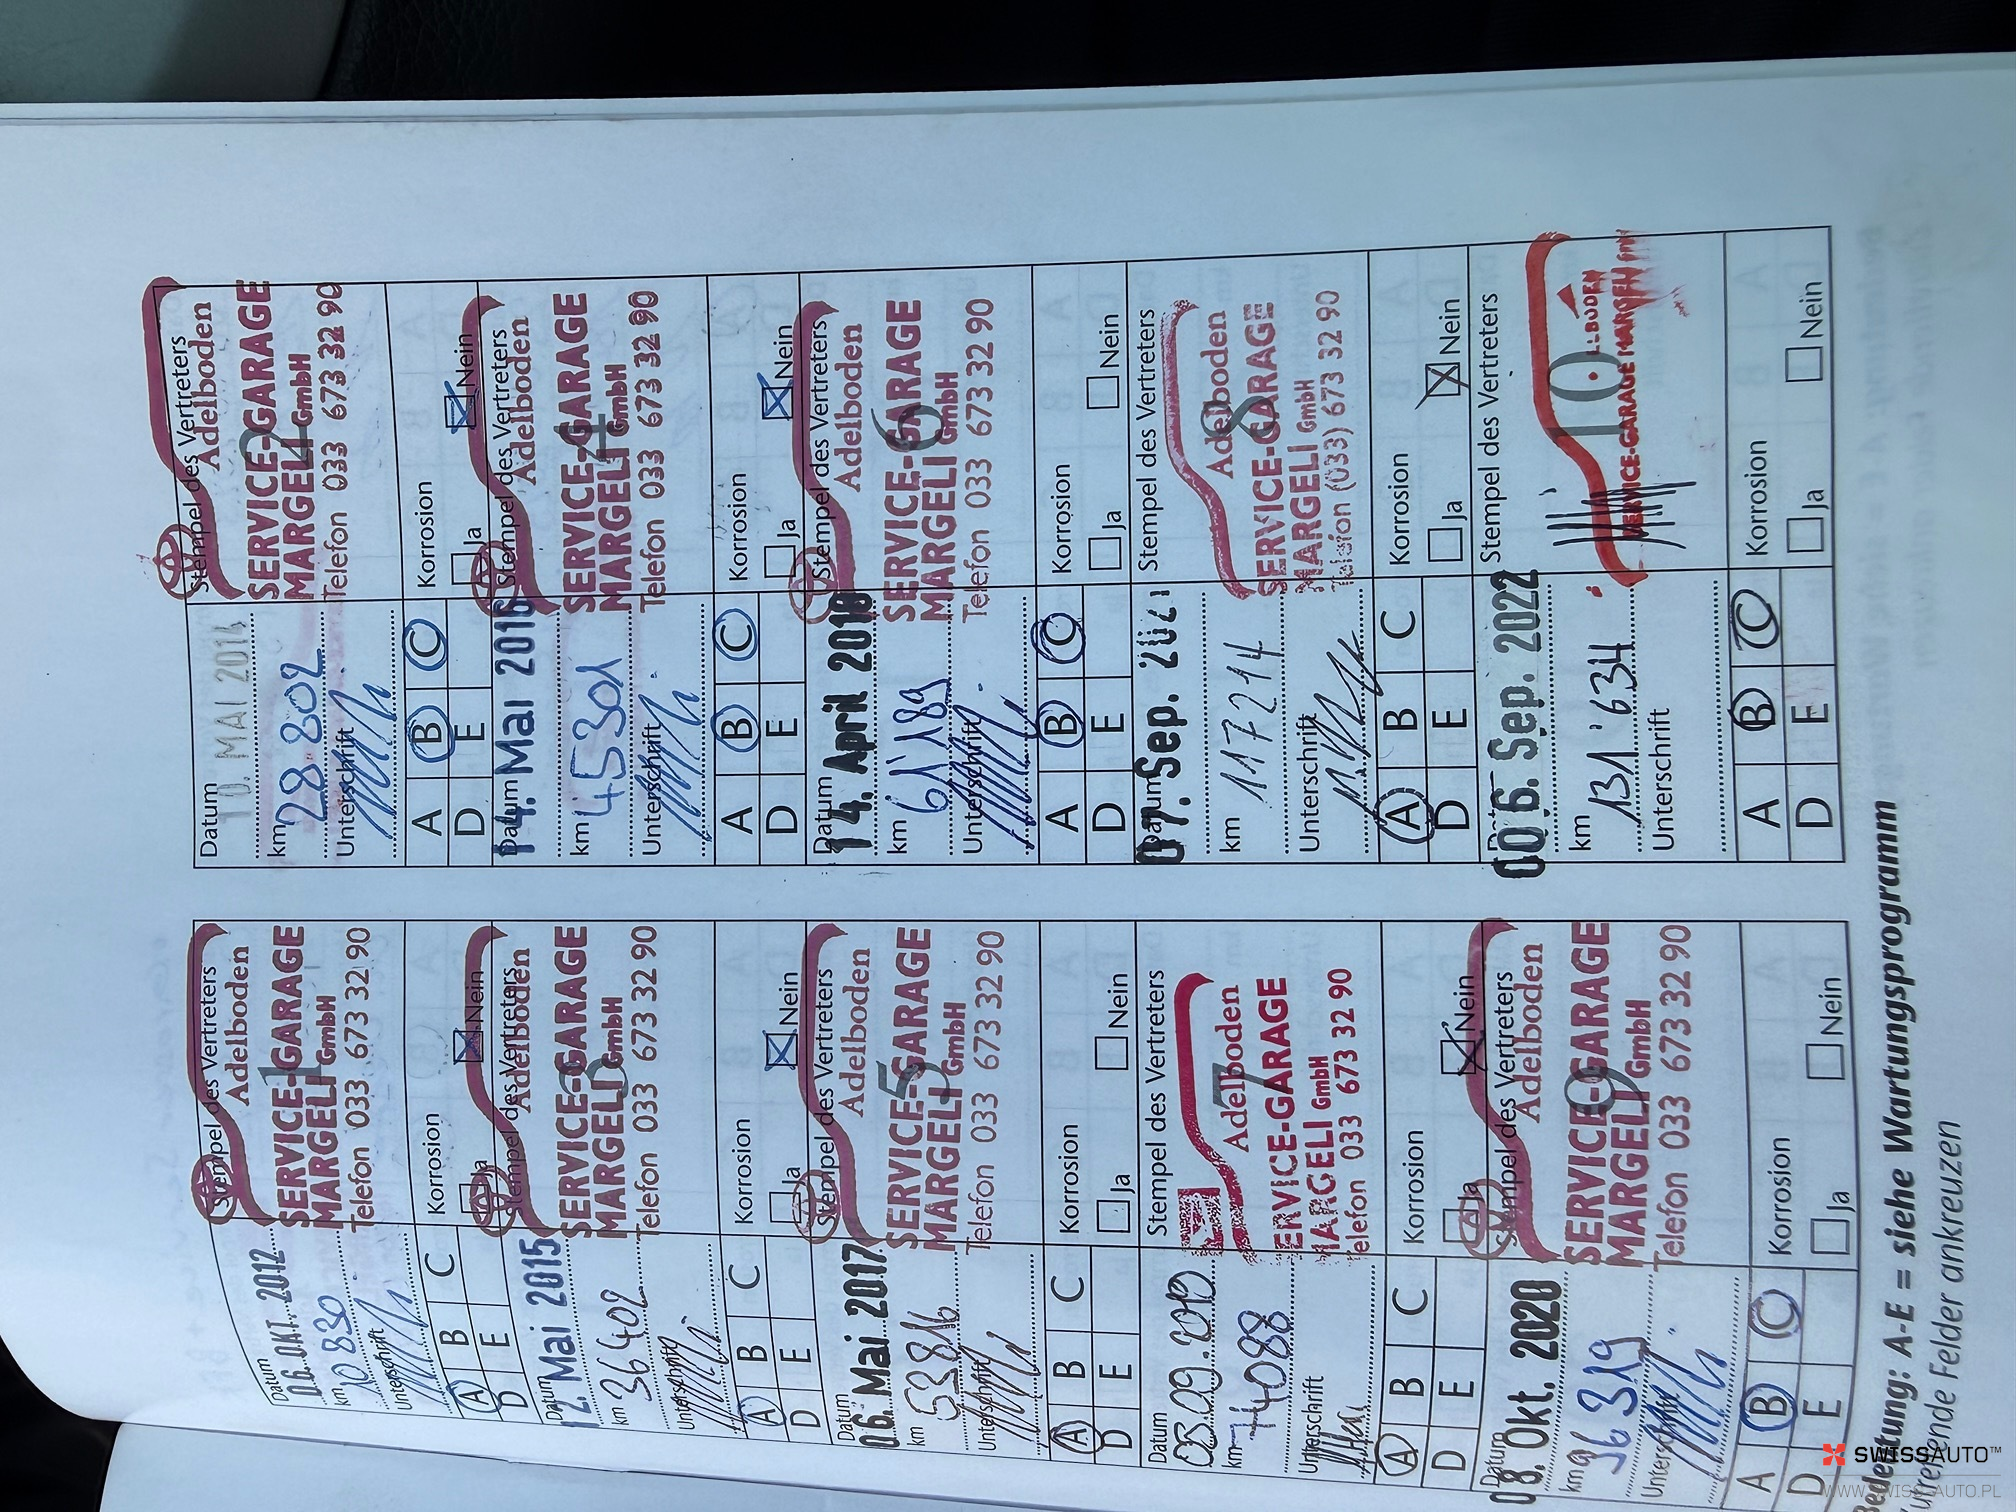 Datum
06. OKT. 2012
km 10 830
Unterschrift
Stempel des Vertreters
Adelboden
1
SERVICE-GARAGE
MARGELI GmbH
Telefon 033 673 32 90
A B C
D E
Korrosion
Ja Nein
Datum
10. MAI 2014
km 28 802
Unterschrift
Stempel des Vertreters
Adelboden
2
SERVICE-GARAGE
MARGELI GmbH
Telefon 033 673 32 90
A B C
D E
Korrosion
Ja Nein
Datum
12. Mai 2015
km 36 402
Unterschrift
Stempel des Vertreters
Adelboden
3
SERVICE-GARAGE
MARGELI GmbH
Telefon 033 673 32 90
A B C
D E
Korrosion
Ja Nein
Datum
14. Mai 2016
km 45301
Unterschrift
Stempel des Vertreters
Adelboden
4
SERVICE-GARAGE
MARGELI GmbH
Telefon 033 673 32 90
A B C
D E
Korrosion
Ja Nein
Datum
06. Mai 2017
km 53816
Unterschrift
Stempel des Vertreters
Adelboden
5
SERVICE-GARAGE
MARGELI GmbH
Telefon 033 673 32 90
A B C
D E
Korrosion
Ja Nein
Datum
14. April 2018
km 61'189
Unterschrift
Stempel des Vertreters
Adelboden
6
SERVICE-GARAGE
MARGELI GmbH
Telefon 033 673 32 90
A B C
D E
Korrosion
Ja Nein
Datum
km 74088
Unterschrift
Stempel des Vertreters
Adelboden
7
SERVICE-GARAGE
MARGELI GmbH
Telefon 033 673 32 90
A B C
D E
Korrosion
Ja Nein
Datum
07. Sep. 2021
km 117214
Unterschrift
Stempel des Vertreters
Adelboden
8
SERVICE-GARAGE
MARGELI GmbH
Telefon (033) 673 32 90
A B C
D E
Korrosion
Ja Nein
Datum
08. Okt. 2020
km 96 319
Unterschrift
Stempel des Vertreters
Adelboden
9
SERVICE-GARAGE
MARGELI GmbH
Telefon 033 673 32 90
A B C
D E
Korrosion
Ja Nein
06. Sep. 2022
km 131'634
Unterschrift
Stempel des Vertreters
10
SERVICE-GARAGE
A B C
D E
Korrosion
Ja Nein
Bedeutung: A-E = siehe Wartungsprogramm
Felder ankreuzen
SWISSAUTO™
WWW.SWISS-AUTO.PL